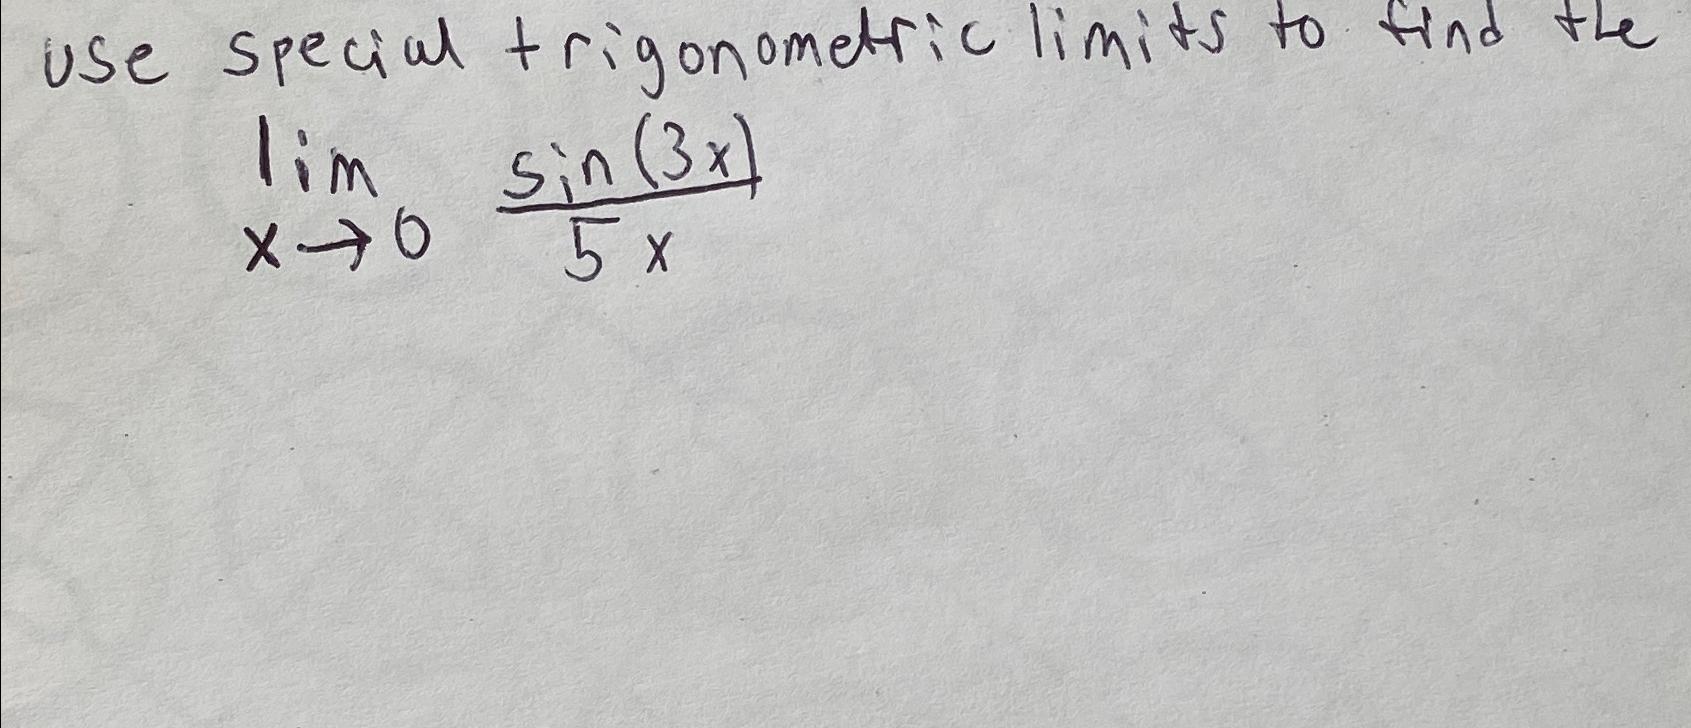 use special trigonometric limits to find the
lim sin(3x)
x→0 5x